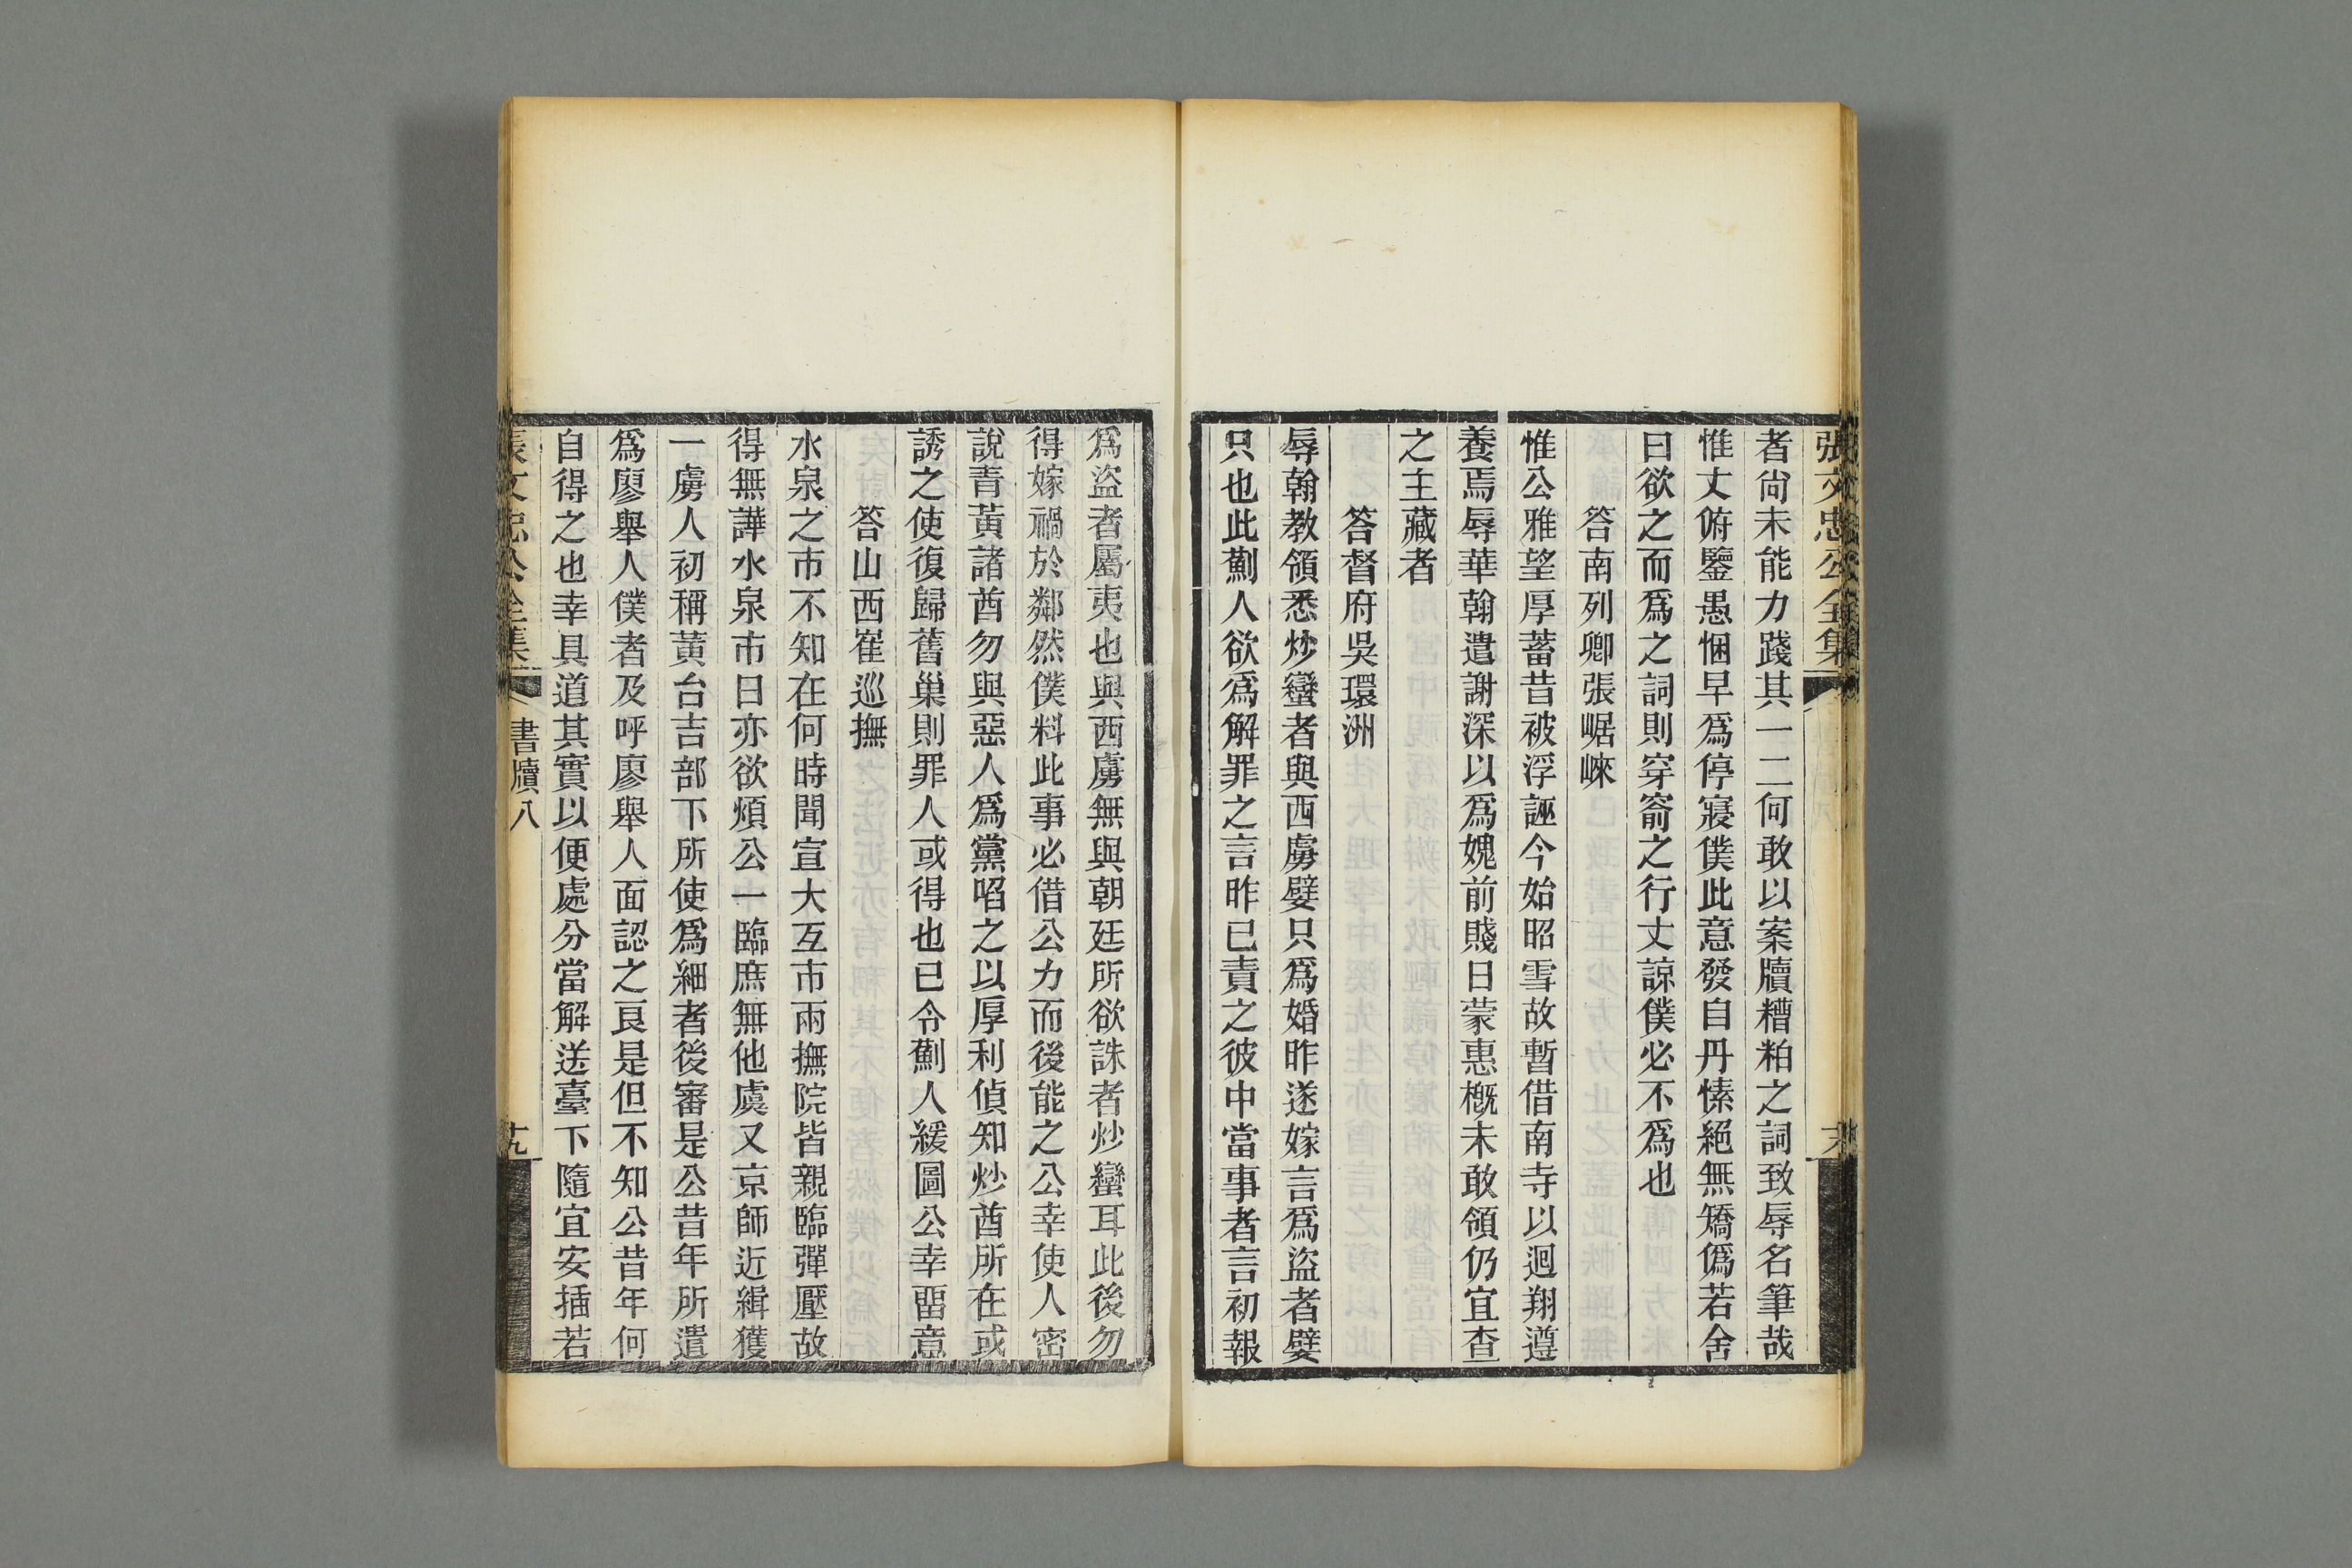 張文忠公全集
者尙未能力踐其一二何敢以案牘糟粕之詞致辱名筆哉
惟丈俯鑒愚悃早爲停寢僕此意發自丹愫絕無矯僞若舍
曰欲之而爲之詞則穿窬之行丈諒僕必不爲也
答南列卿張崌崍
惟公雅望厚蓄昔被浮誣今始昭雪故暫借南寺以迴翔遵
養焉辱華翰遣謝深以爲媿前賤日蒙惠槪未敢領仍宜查
之主藏者
答督府吳環洲
辱翰教領悉炒蠻者與西虜嬖只爲婚昨遂嫁言爲盜者嬖
只也此薊人欲爲解罪之言昨已責之彼中當事者言初報
爲盜者屬夷也與西虜無與朝廷所欲誅者炒蠻耳此後勿
得嫁禍於鄰然僕料此事必借公力而後能之公幸使人密
說靑黃諸酋勿與惡人爲黨啗之以厚利偵知炒酋所在或
誘之使復歸舊巢則罪人或得也已令薊人緩圖公幸畱意
答山西崔巡撫
水泉之市不知在何時聞宣大互市兩撫院皆親臨彈壓故
得無譁水泉市日亦欲煩公一臨庶無他虞又京師近緝獲
一虜人初稱黃台吉部下所使爲細者後審是公昔年所遣
爲廖舉人僕者及呼廖舉人面認之良是但不知公昔年何
自得之也幸具道其實以便處分當解送臺下隨宜安插若
張文忠公全集
書牘八
十九